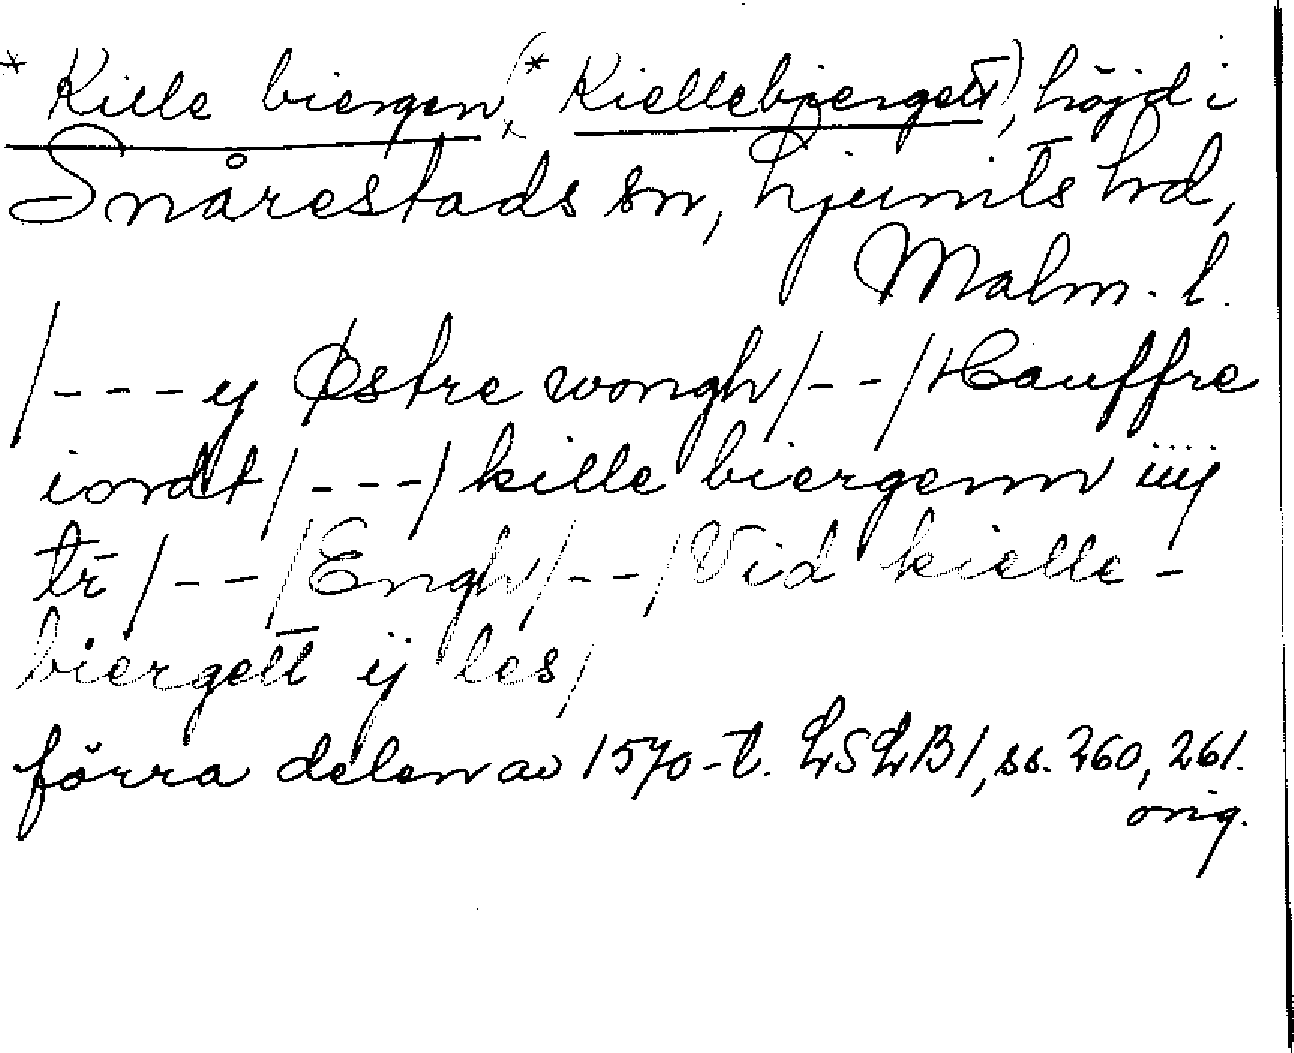 * Kille biergen, (* Kiellebiergett), höjd i
Snårestads sn, Ljunits hd,
Malm. l.
/---y Østre wongh/--/Hauffre
iordt/---/kille biergenn iiij
tr̄/--/Engh/--/Vid kielle-
biergett ij les/
förra delen av 1570-t. LSLB1, ss. 260, 261.
orig.